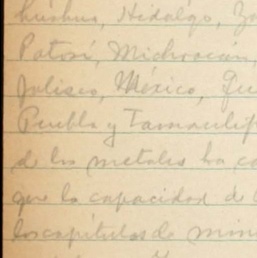 Hidalgo,
Potosí, Michoacán,
Jalisco, México,
Puebla y Tamaulip
de los metales ha co
que la capacidad de
los capítulos de min